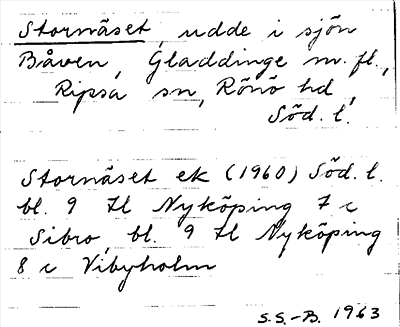 Stornäset, udde i sjön
Båven, Gladdinge m. fl.,
Ripsa sn, Rönö hd,
Söd. l.
Stornäset ek (1960) Söd. l.
bl. 9 H Nyköping 7 c
Sibro, bl. 9 H Nyköping
8 c Vibyholm
S.S.-B. 1963